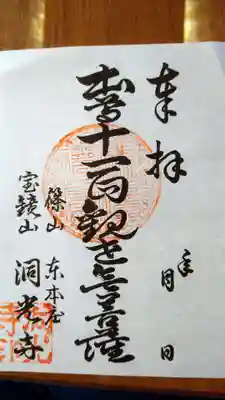 奉拝
年 月 日
十一面観世音菩薩
篠山 东本庄
宝鏡山 洞光寺